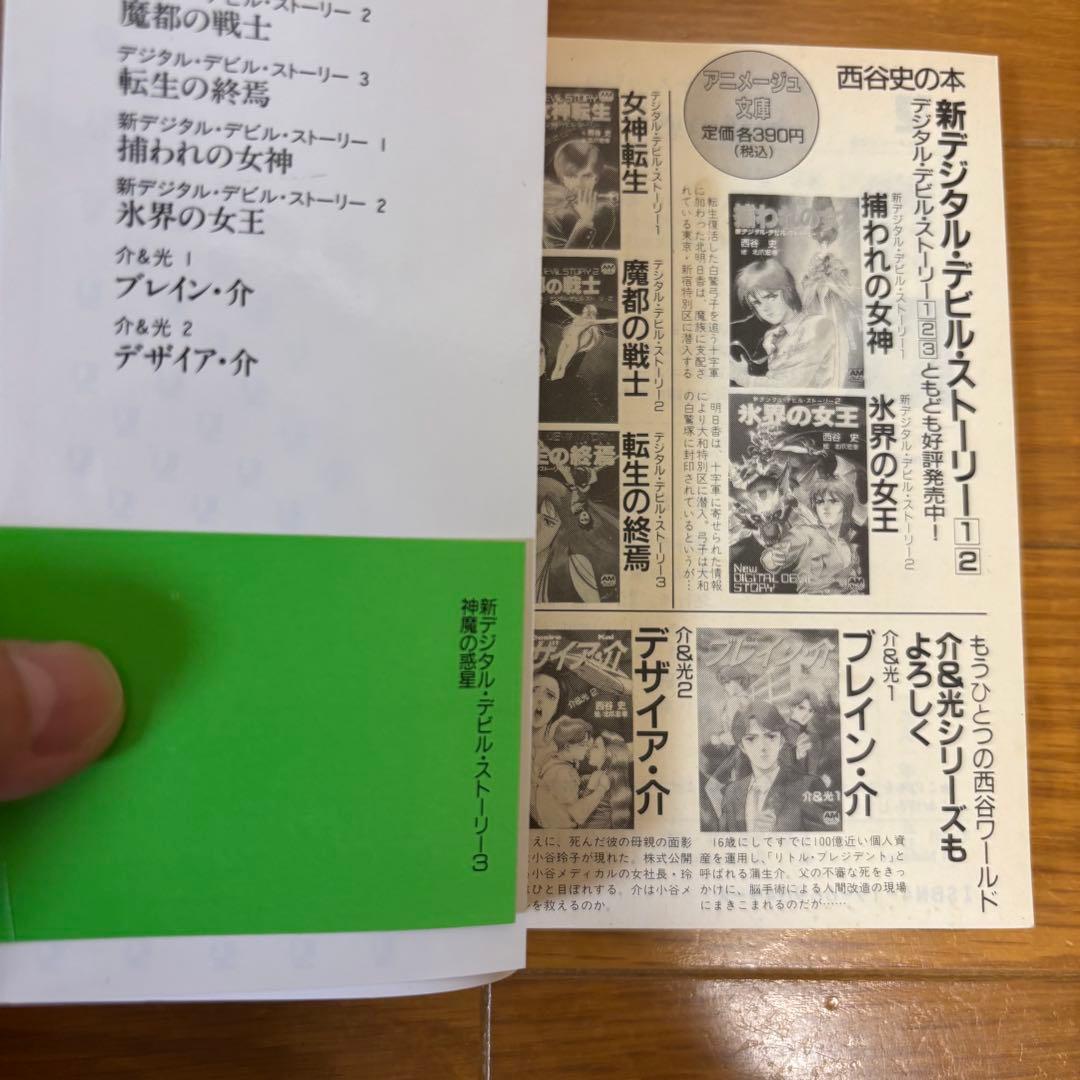 デビル・ストーリー 2
魔都の戦士
デジタル・デビル・ストーリー 3
転生の終焉
新デジタル・デビル・ストーリー 1
捕われの女神
新デジタル・デビル・ストーリー 2
氷界の女王
介&光 1
ブレイン・介
介&光 2
デザイア・介
新デジタル・デビル・ストーリー3
神魔の惑星
西谷史の本
アニメージュ
文庫
定価各390円
(税込)
新デジタル・デビル・ストーリー12
デジタル・デビル・ストーリー123ともども好評発売中!
新デジタル・デビル・ストーリー1
捕われの女神
転生復活した白鷺弓子を追う十字軍
に加わった北明日香は、魔族に支配さ
れている東京・新宿特別区に潜入する
新デジタル・デビル・ストーリー2
氷界の女王
西谷 史
New
DIGITAL DEVIL
STORY
明日香は、十字軍に寄せられた情報
により大和特別区に潜入。弓子は大和
の白鷺塚に封印されているというが…
デジタル・デビル・ストーリー1
女神転生
デジタル・デビル・ストーリー2
魔都の戦士
デジタル・デビル・ストーリー3
転生の終焉
もうひとつの西谷ワールド
介&光シリーズも
よろしく
介&光1
ブレイン・介
16歳にしてすでに100億近い個人資
産を運用し、「リトル・プレジデント」と
呼ばれる蒲生介。父の不審な死をきっ
かけに、脳手術による人間改造の現場
にまきこまれるのだが……
介&光2
デザイア・介
えに、死んだ彼の母親の面影
小谷玲子が現れた。株式公開
小谷メディカルの女社長・玲
はひと目ぼれする。介は小谷メ
を救えるのか。